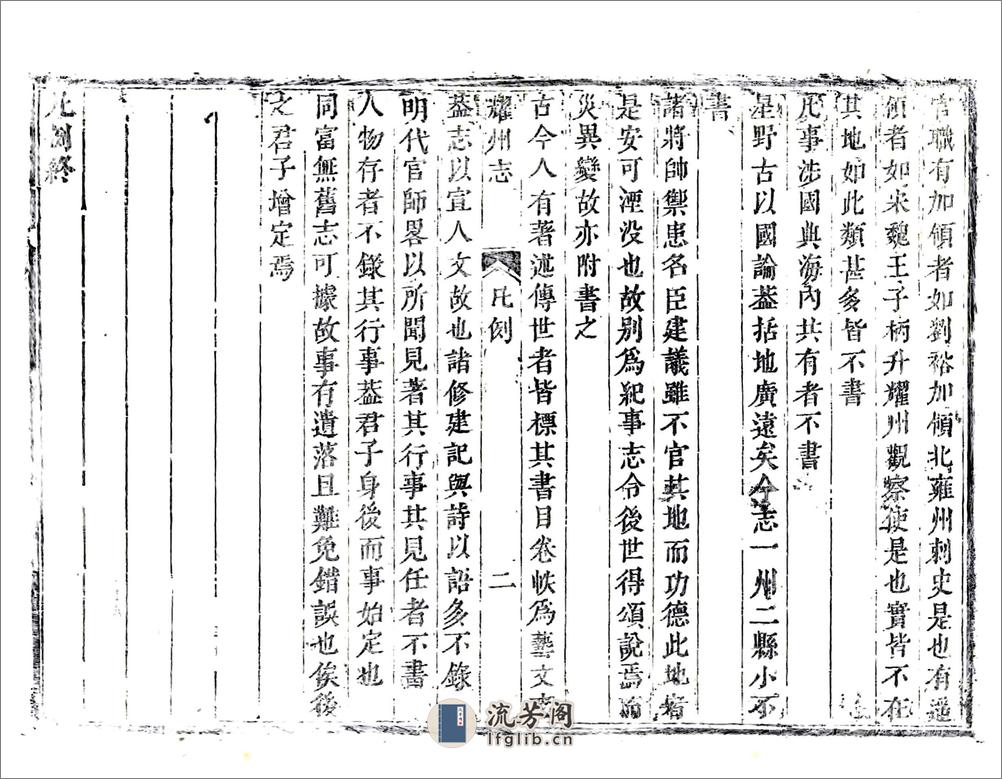 官職有加領者如劉裕加領北雍州刺史是也有遥
領者如宋魏王子柄升耀州觀察使是也實皆不在
其地如此類甚多皆不書
凡事涉國典海內共有者不書
星野古以國論葢括地廣遠矣今志一州二縣小不
書
諸將帥禦患名臣建議雖不官其地而功德此地者
是安可湮没也故别爲紀事志令後世得頌說焉而
災異變故亦附書之
古今人有著述傳世者皆標其書目卷帙爲藝文志
耀州志 凡例 二
葢志以宣人文故也諸修建記與詩以語多不錄
明代官師畧以所聞見著其行事其見任者不書
人物存者不錄其行事葢君子身後而事始定也
同富無舊志可據故事有遺落且難免錯誤也俟後
之君子增定焉
凡例終
流芳阁
lfglib.cn